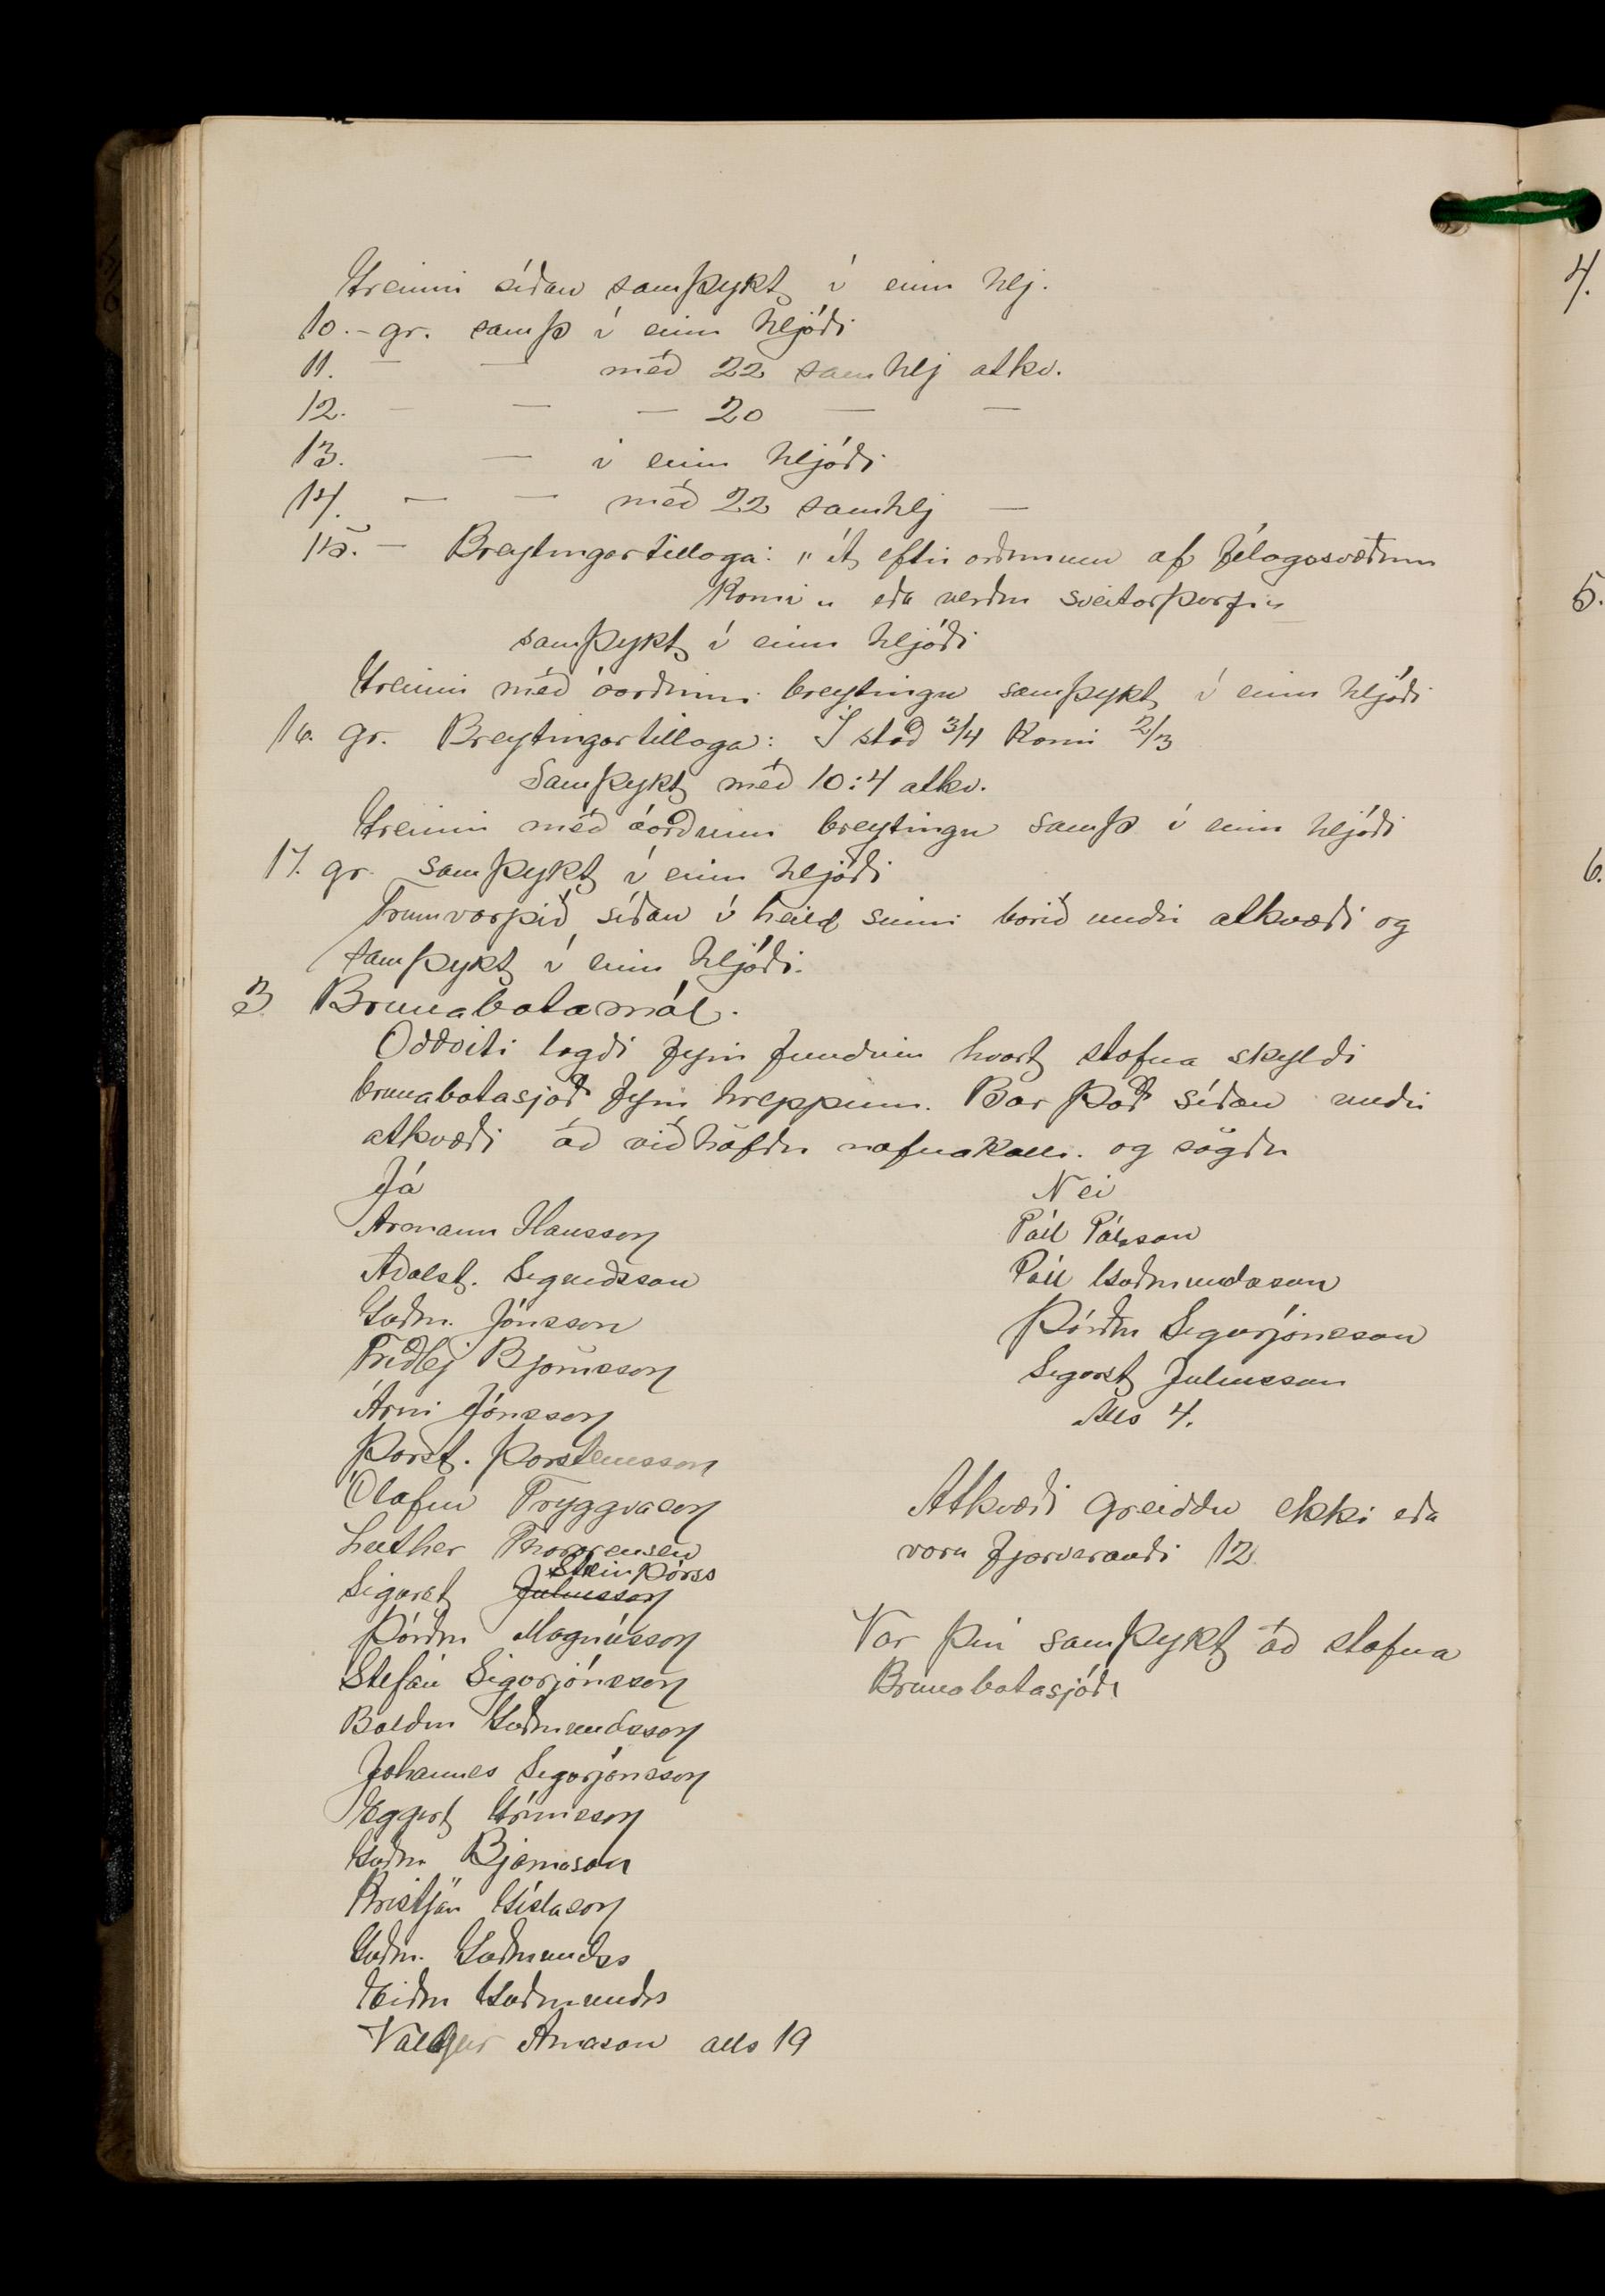 Greinin síðan samþykt í einu hlj.
10. - gr. samþ í einu hljóði
11. — — með 22 samhlj atkv.
12. — — — 20 — —
13. — í einu hljóði
14. — — með 22 samhlj —
15. — Breytingartillaga: „út eftir orðunum af félagssvæðinu
komi „ eða verður sveitarþurfi„
samþykt í einu hljóði
Greinin með áorðinni breytingu samþykt í einu hljóði
16. gr. Breytingartillaga: Í stað 3/4 komi 2/3
Samþykt með 10:4 atkv.
Greinin með áorðinni breytingu samþ í einu hljóði
17. gr. samþykt í einu hljóði
Frumvarpið síðan í heild sinni borið undir atkvæði og
samþykt í einu hljóði.
3 Brunabotamál.
Oddviti lagði fyrir fundinn hvort stofna skyldi
brunabotasjóð fyrir hreppinn. Bar það síðan undir
atkvæði að viðhöfðu nafnakalli. og sögðu
Já
Armann Hansson
Aðalst. Sigurdsson
Guðm. Jónsson
Friðlej Björnsson
Árni Jónsson
Þorst. Þorsteinsson
Ólafur Tryggvason
Luther Thorarensen
Steinþórss
Sigurst Juliusson
Þórður Magnússon
Stefán Sigurjónsson
Baldur Guðmundsson
Johannes Sigurjónsson
Eggert Grímsson
Guðm Bjarnason
Kristján Gíslason
Guðm. Guðmundss
Eiður Guðmunds
Valgeir Arnason alls 19
Nei
Páll Pálsson
Páll Guðmundsson
Þórður Sigurjónsson
Sigurst Juliusson
Alls 4.
Atkvæði greiddu ekki eða
voru fjarverandi 12
Var því samþykt að stofna
Brunabotasjóð
4.
5.
6.